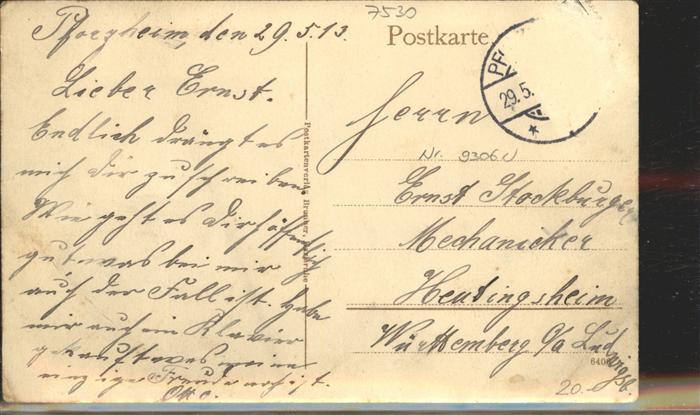 7530
Pforzheim, den 29.5.13.
Postkarte
PF
29.5.
Lieber Ernst.
Endlich drängt es
mich dir zu schreiben.
Wie geht es Dir hoffentlich
gut was bei mir
auch der Fall ist. Habe
mir auch ein Klavier
gekauft was meine
einzige Freude ist.
Otto.
Herrn
Nr. 9306 N
Ernst Stockburger
Mechanicker
Heutingsheim
Württemberg O/a Ludwigsb.
640
20.-
Postkartenverlag Brunner,